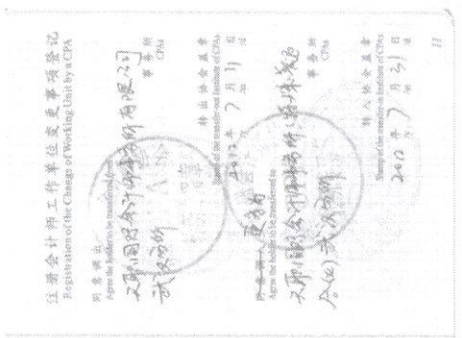 注册会计师工作单位变更事项登记
Registration of the Change of Working Unit by a CPA
同意调出
Agree the holder to be transferred from
天职国际会计师事务所有限公司
武汉分所
事务所
CPAs
转出协会盖章
Stamp of the transfer-out Institute of CPAs
2012年7月31日
Agree the holder to be transferred to
天职国际会计师事务所(特殊普通
合伙)武汉分所
事务所
CPAs
转入协会盖章
Stamp of the transfer-in Institute of CPAs
2012年7月31日